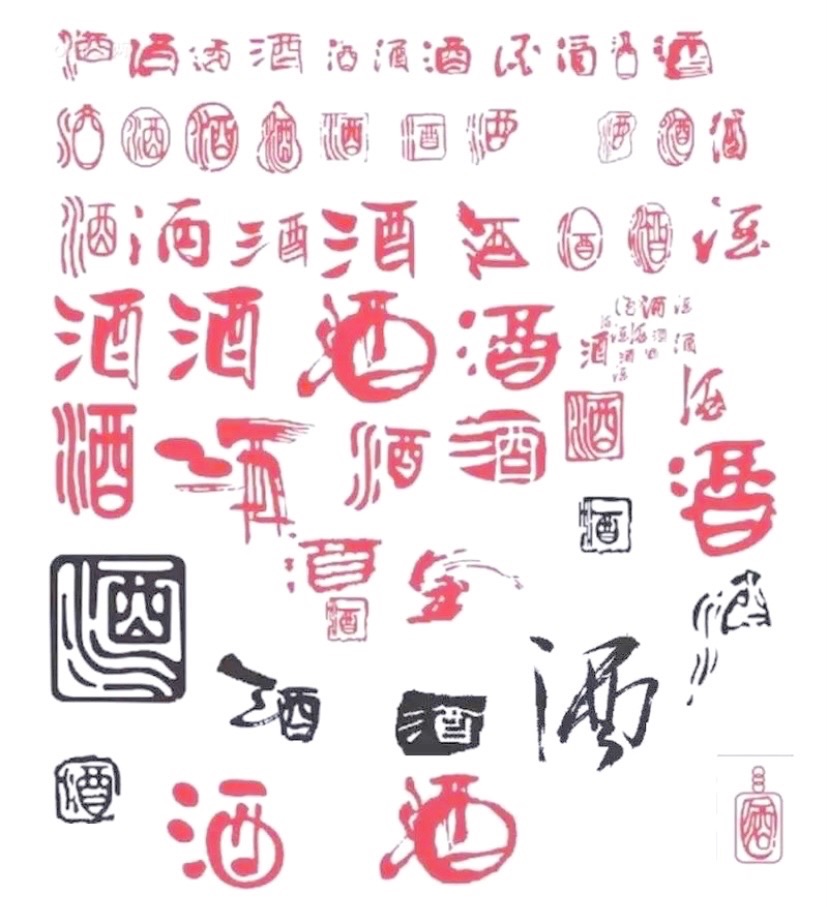 酒 酒 酒 酒 酒 酒 酒 酒 酒 酒 酒
酒 酒 酒 酒 酒 酒 酒 酒 酒 酒
酒 酒 酒 酒 酒 酒 酒 酒
酒 酒 酒 酒 酒 酒
酒 酒 酒 酒 酒 酒
酒 酒 酒
酒 酒 酒 酒 酒
酒 酒 酒 酒